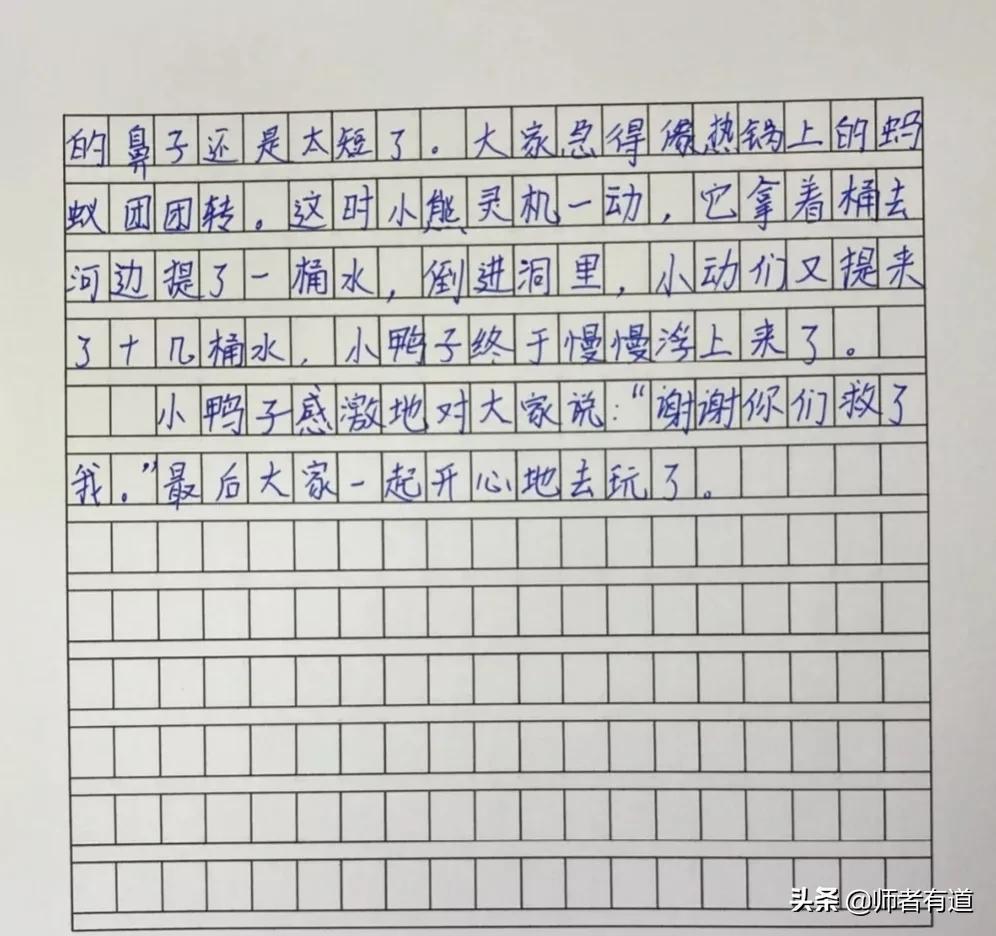 的鼻子还是太短了。大家急得像热锅上的蚂
蚁团团转。这时小熊灵机一动，它拿着桶去
河边提了一桶水，倒进洞里，小动们又提来
了十几桶水，小鸭子终于慢慢浮上来了。
小鸭子感激地对大家说：“谢谢你们救了
我。”最后大家一起开心地去玩了。
头条 @师者有道